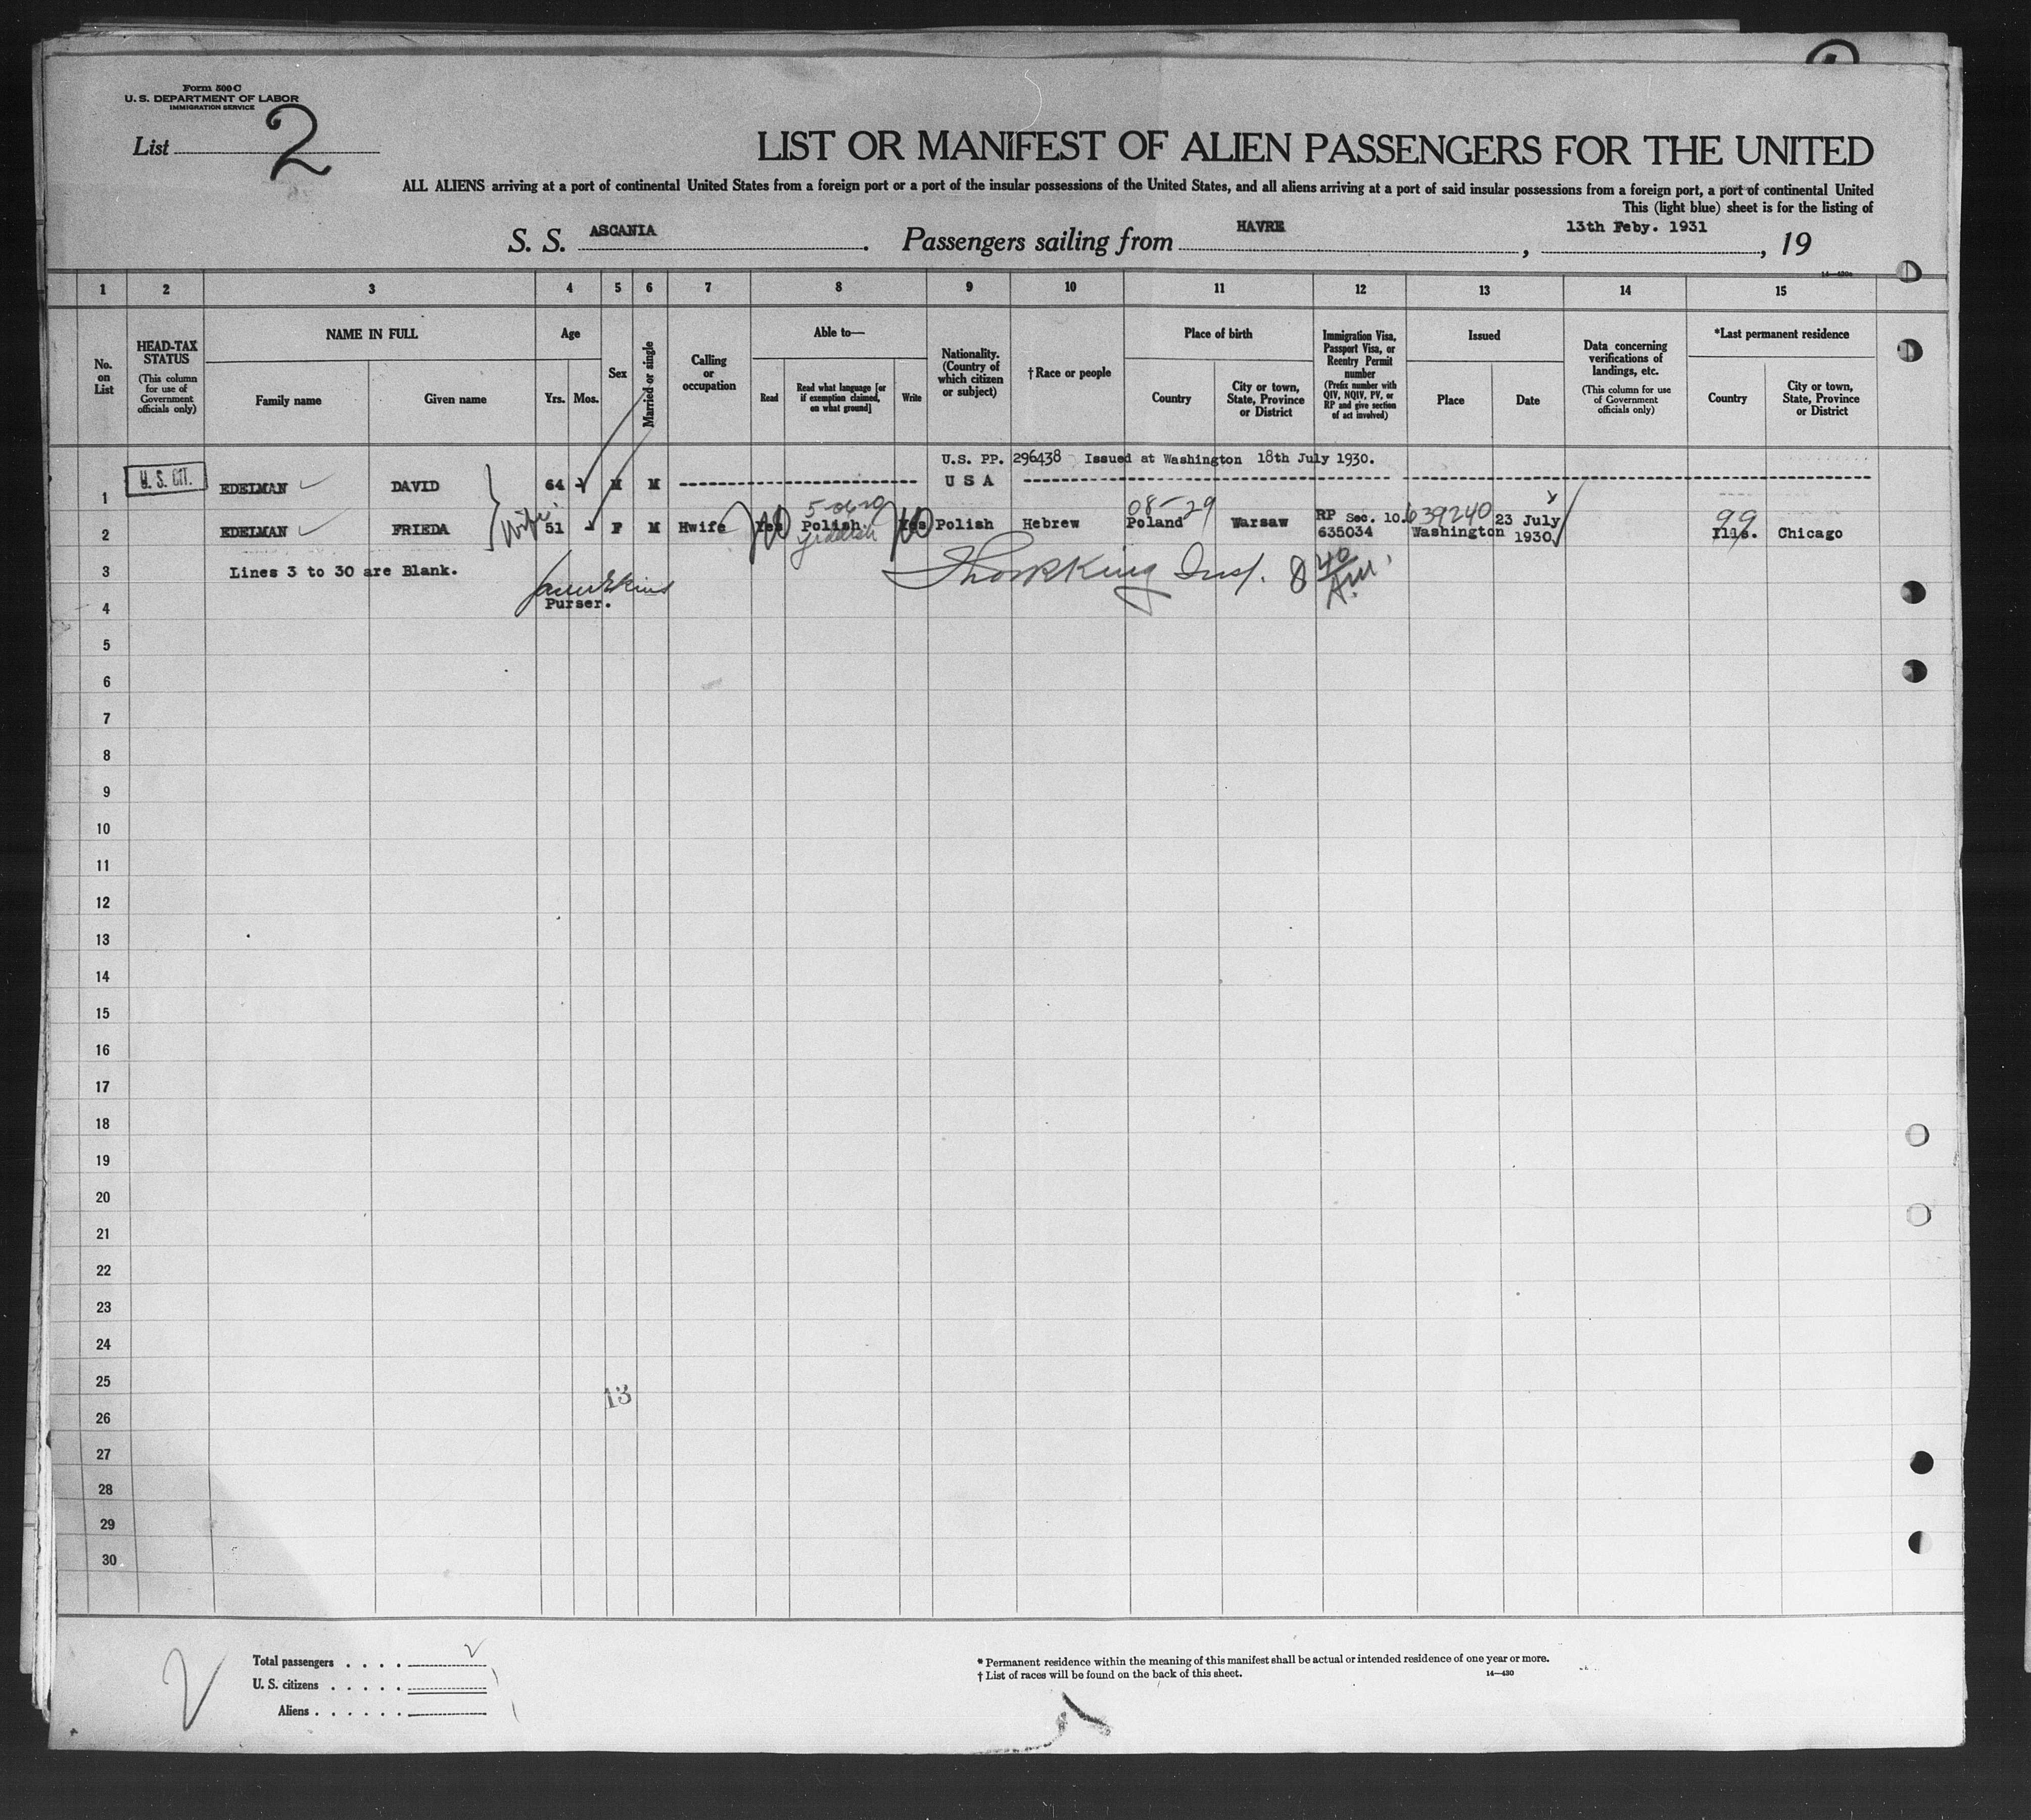 Form 500 C
U. S. DEPARTMENT OF LABOR
IMMIGRATION SERVICE
List 2
LIST OR MANIFEST OF ALIEN PASSENGERS FOR THE UNITED
ALL ALIENS arriving at a port of continental United States from a foreign port or a port of the insular possessions of the United States, and all aliens arriving at a port of said insular possessions from a foreign port, a port of continental United
This (light blue) sheet is for the listing of
S. S. ASCANIA. Passengers sailing from HAVRE, 13th Feby. 1931, 19
1 2 3 4 5 6 7 8 9 10 11 12 13 14 15
No. on List
HEAD-TAX STATUS
(This column for use of Government officials only)
NAME IN FULL
Family name
Given name
Age
Yrs.
Mos.
Sex
Married or single
Calling or occupation
Able to—
Read
Read what language [or if exemption claimed, on what ground]
Write
Nationality. (Country of which citizen or subject)
†Race or people
Place of birth
Country
City or town, State, Province or District
Immigration Visa, Passport Visa, or Reentry Permit number
(Prefix number with QIV, NQIV, PV, or RP and give section of act involved)
Issued
Place
Date
Data concerning verifications of landings, etc.
(This column for use of Government officials only)
*Last permanent residence
Country
City or town, State, Province or District
U.S. PP. 296438 Issued at Washington 18th July 1930.
1 U. S. CIT. EDELMAN DAVID 64 M M U S A
5-
08-29
639240
99
2 EDELMAN FRIEDA Wife 51 F M Hwife Yes Polish Yes Polish Hebrew Poland Warsaw RP Sec. 10. 635034 Washington 23 July 1930 Ills. Chicago
Yiddish
3 Lines 3 to 30 are Blank.
King Insp. 8 40 AM.
4 Purser.
5
6
7
8
9
10
11
12
13
14
15
16
17
18
19
20
21
22
23
24
25
13
26
27
28
29
30
Total passengers . . . . 2
U. S. citizens . . . . .
Aliens . . . . . .
2
* Permanent residence within the meaning of this manifest shall be actual or intended residence of one year or more.
† List of races will be found on the back of this sheet. 14—430